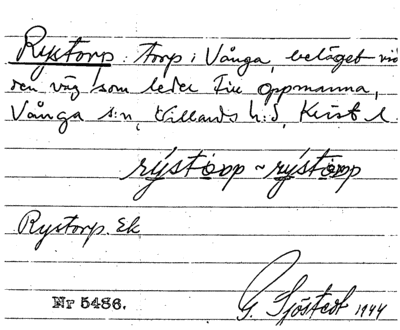 Rystorp: torp i Vånga, beläget vid
den väg som leder till Oppmanna,
Vånga s:n, Villands h:d, Krist l.
rýstòrp ~ rýstòrp
Rystorp. Ek.
Nr 5486.
G. Sjöstedt 1944